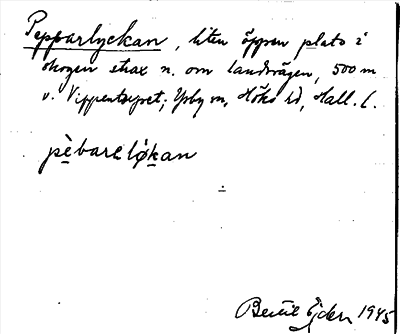 Pepparlyckan, liten öppen plats i
skogen strax n. om landsvägen, 500 m
v. Vippentorpet; Ysby sn, Höks hd, Hall. l.
pèbarəløkan
Bertil Ejder 1945